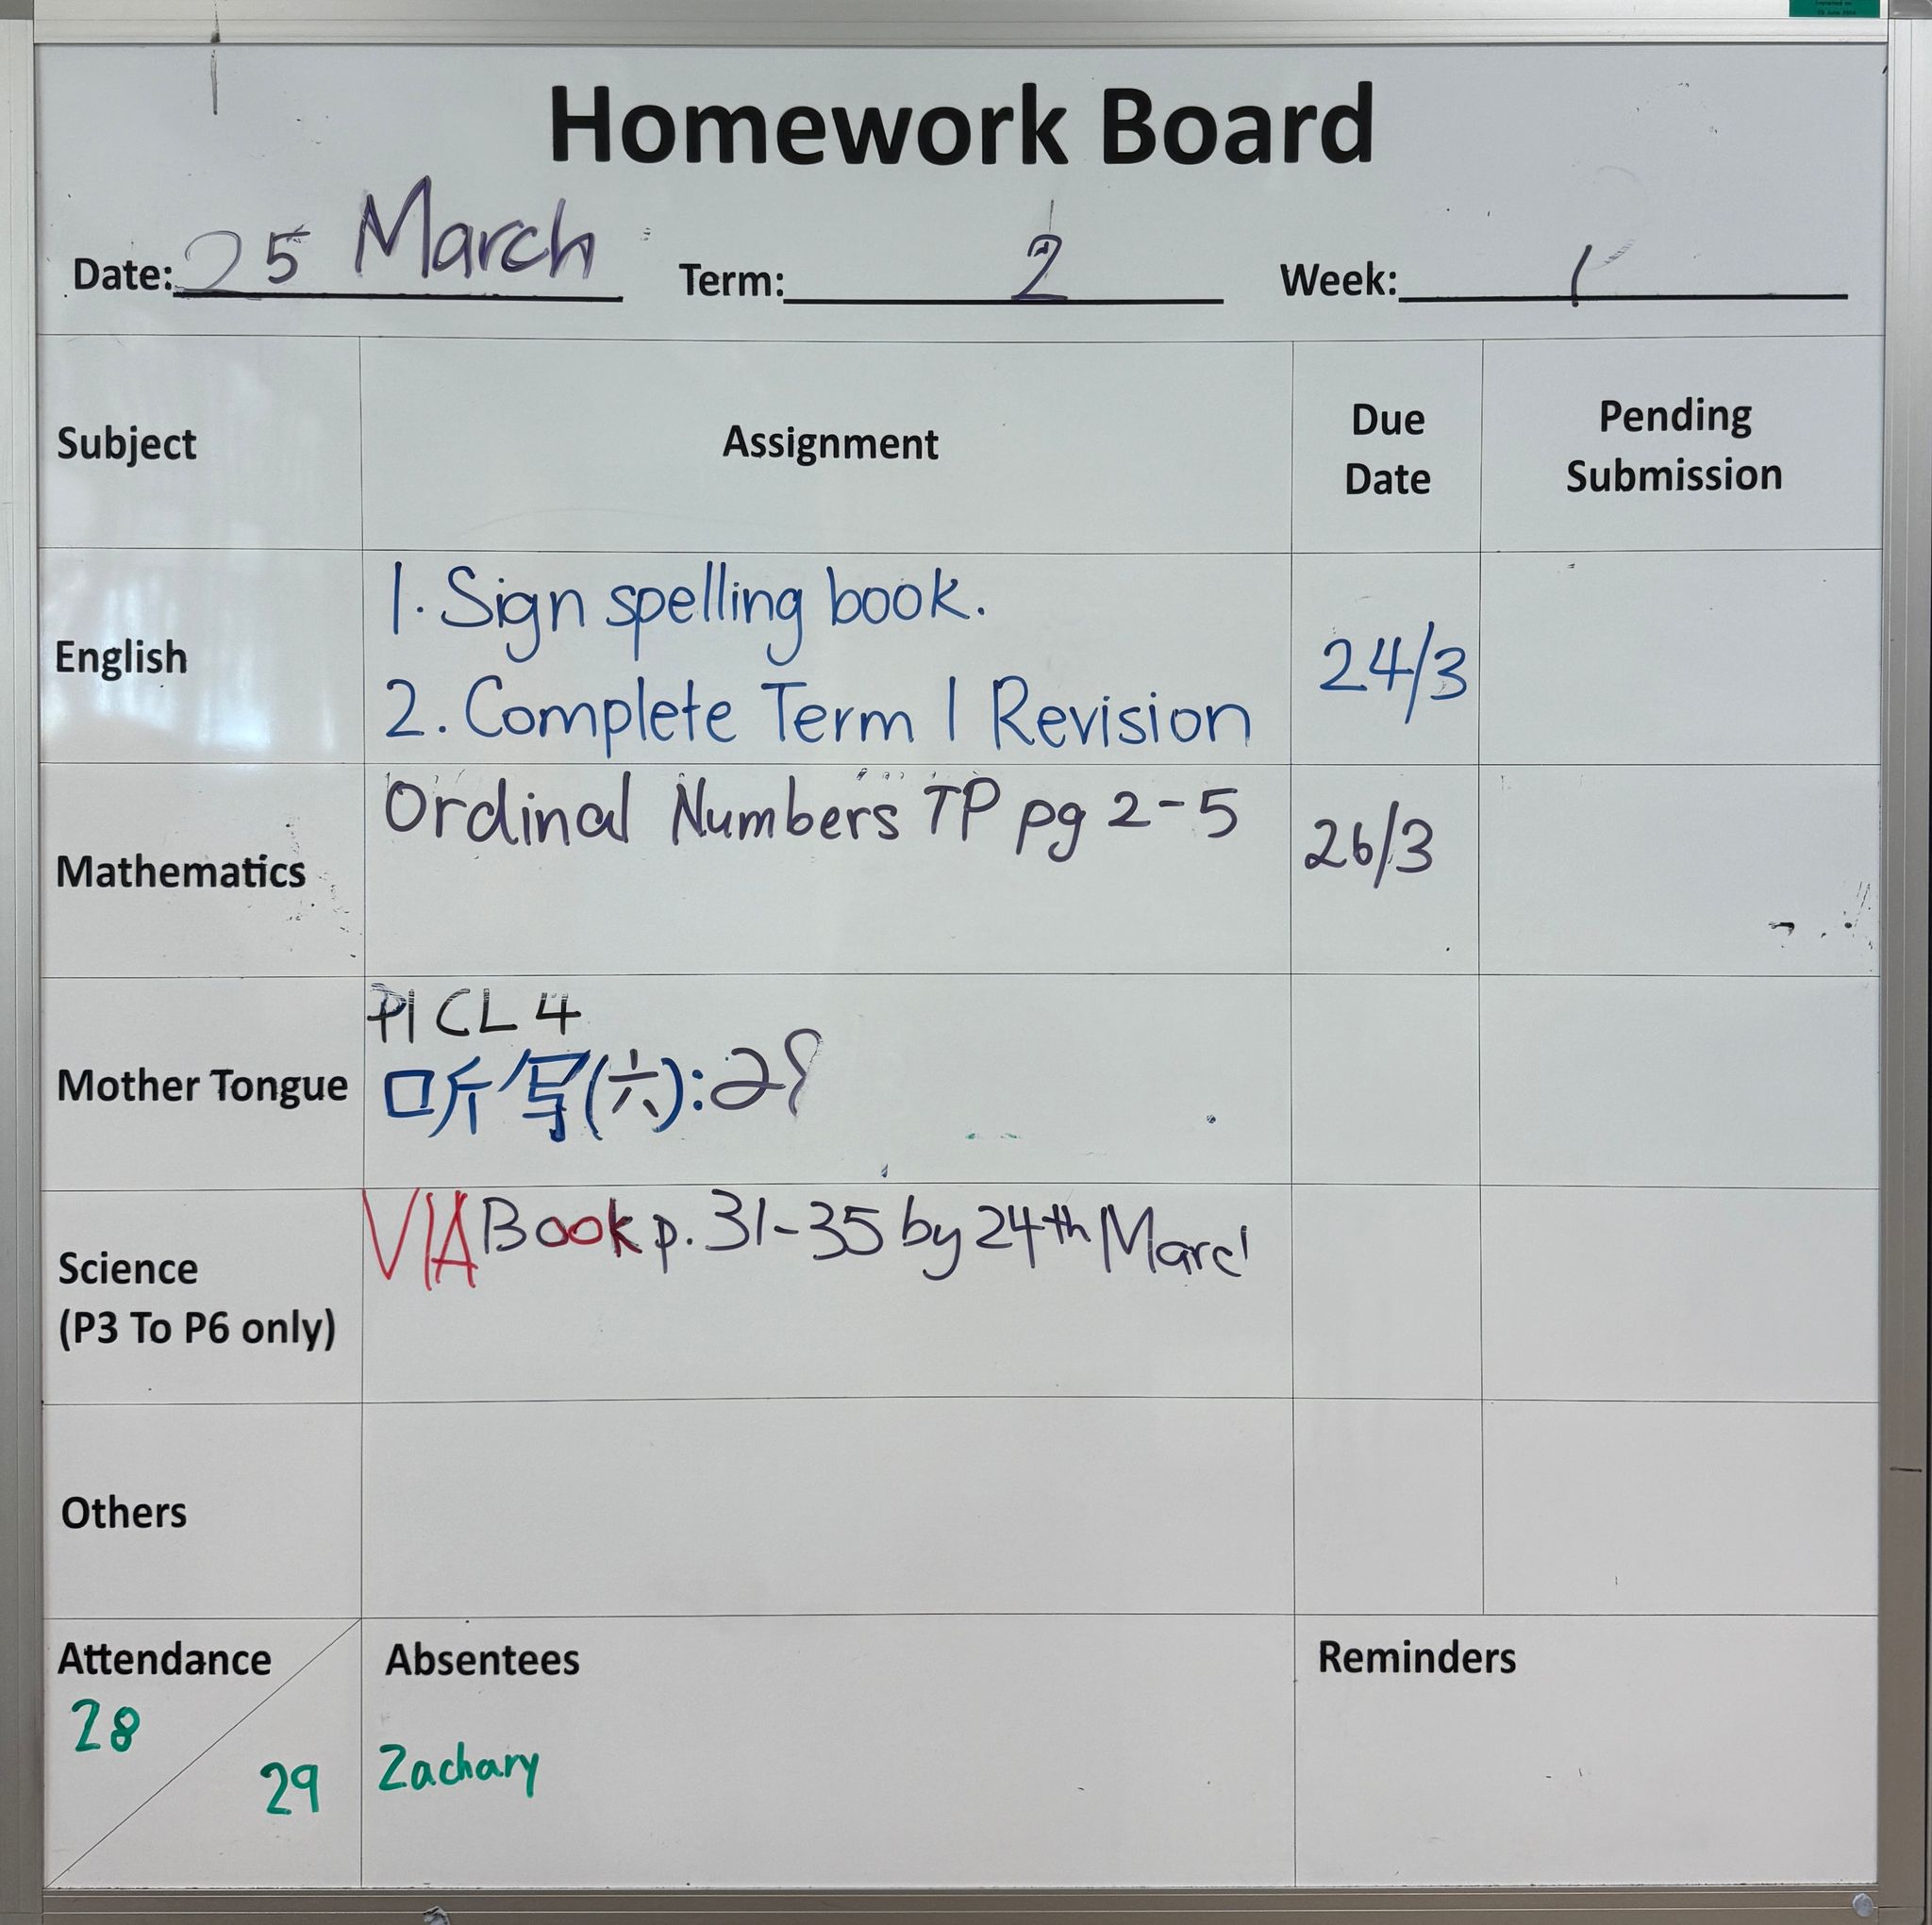 Homework Board
Date: 25 March Term: 2 Week: 1
Subject Assignment Due Date Pending Submission
English
1. Sign spelling book.
2. Complete Term 1 Revision
24/3
Mathematics
Ordinal Numbers TP pg 2-5
26/3
Mother Tongue
P1 CL 4
听写(六):
Science
(P3 To P6 only)
VIA Book p. 31-35 by 24th
Others
Attendance
28
29
Absentees
Zachary
Reminders